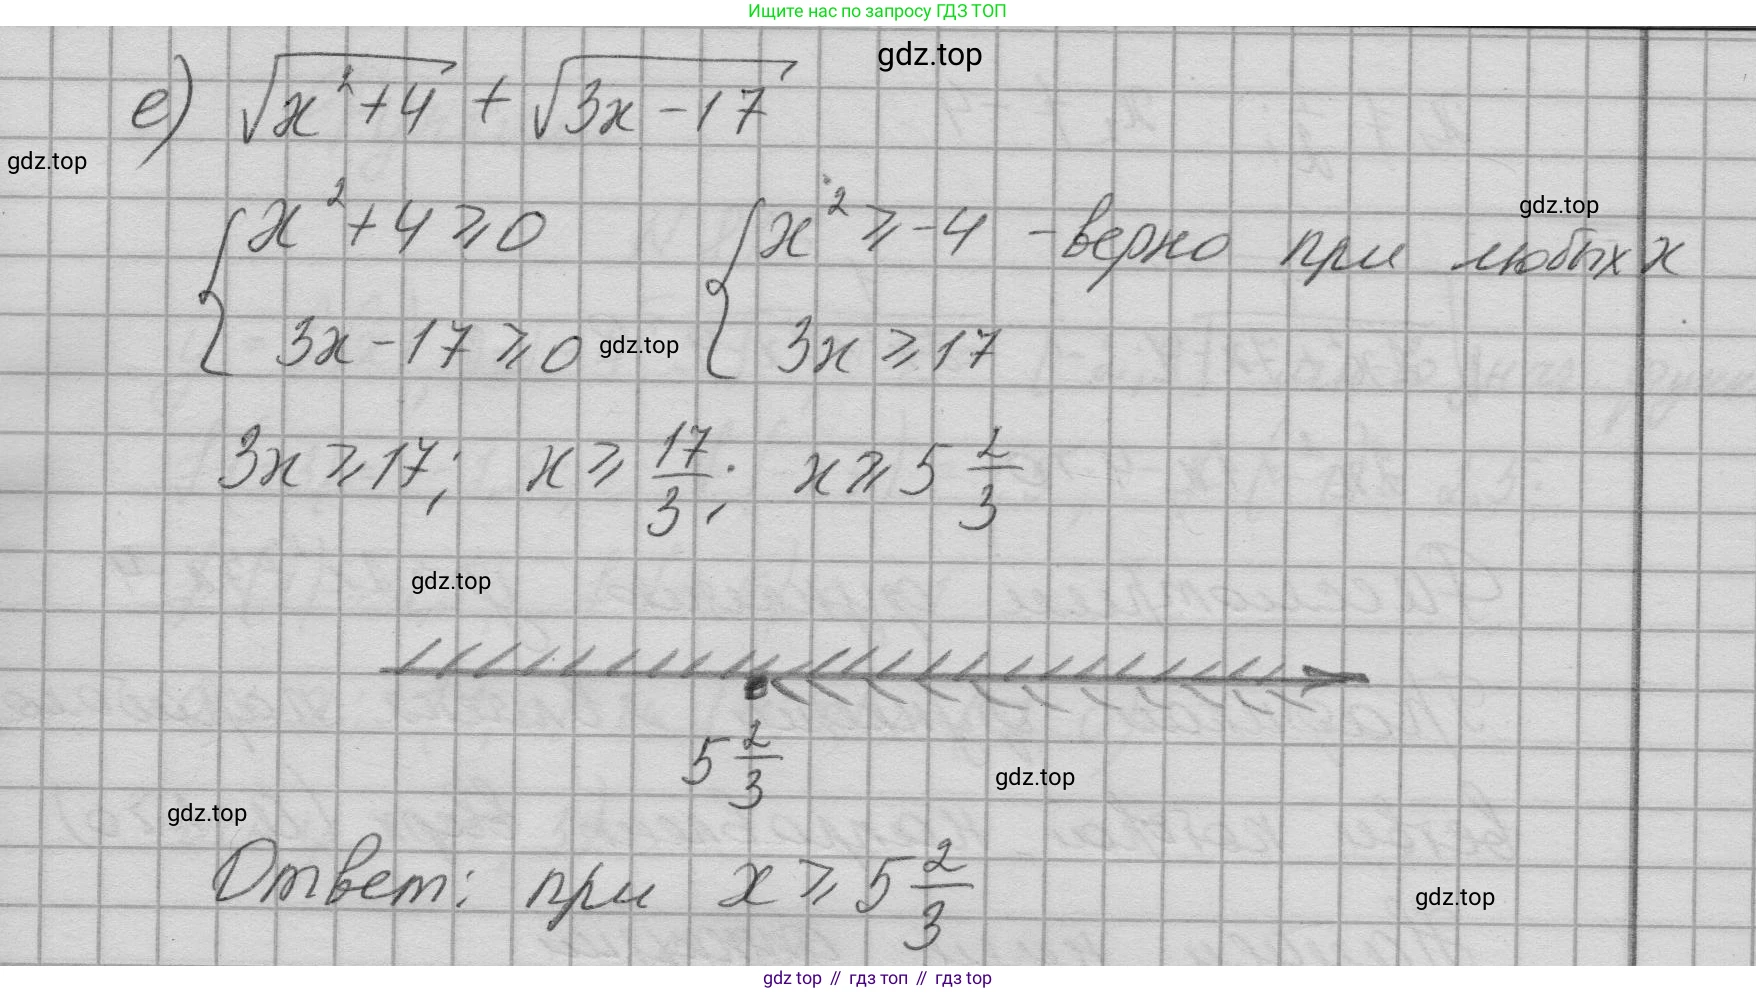 Ищите нас по запросу ГДЗ ТОП
gdz.top
е) √(x²+4) + √(3x-17)
gdz.top
gdz.top
{ x²+4 ⩾ 0 { x² ⩾ -4 - верно при любых x
3x-17 ⩾ 0 gdz.top 3x ⩾ 17
3x ⩾ 17; x ⩾ 17/3; x ⩾ 5 2/3
gdz.top
5 2/3
gdz.top
gdz.top
Ответ: при x ⩾ 5 2/3
gdz.top
gdz top // гдз топ // гдз top